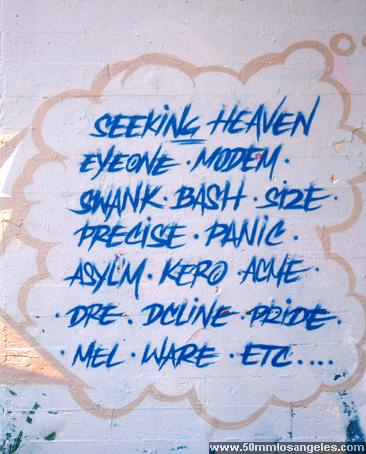 SEEKING HEAVEN
EYEONE · MODEM ·
SWANK · BASH · SIZE ·
PRECISE · PANIC ·
ASYLM · KERO ACME ·
· DRE · DCLINE · PRIDE ·
· MEL · WARE · ETC....
www.50mmlosangeles.com